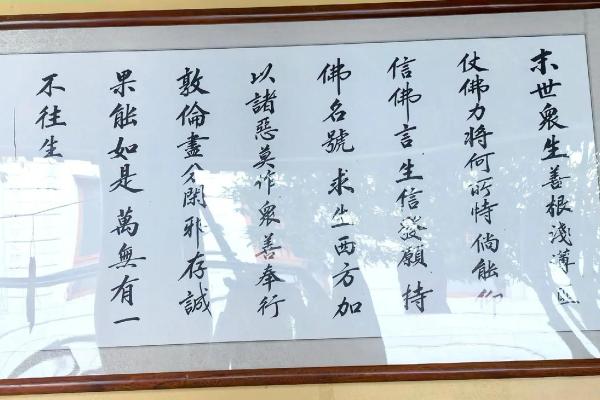 末世衆生善根淺薄
仗佛力將何所恃倘能仰
信佛言生信發願持
佛名號求生西方加
以諸惡莫作衆善奉行
敦倫盡分閑邪存誠
果能如是萬無有一
不往生